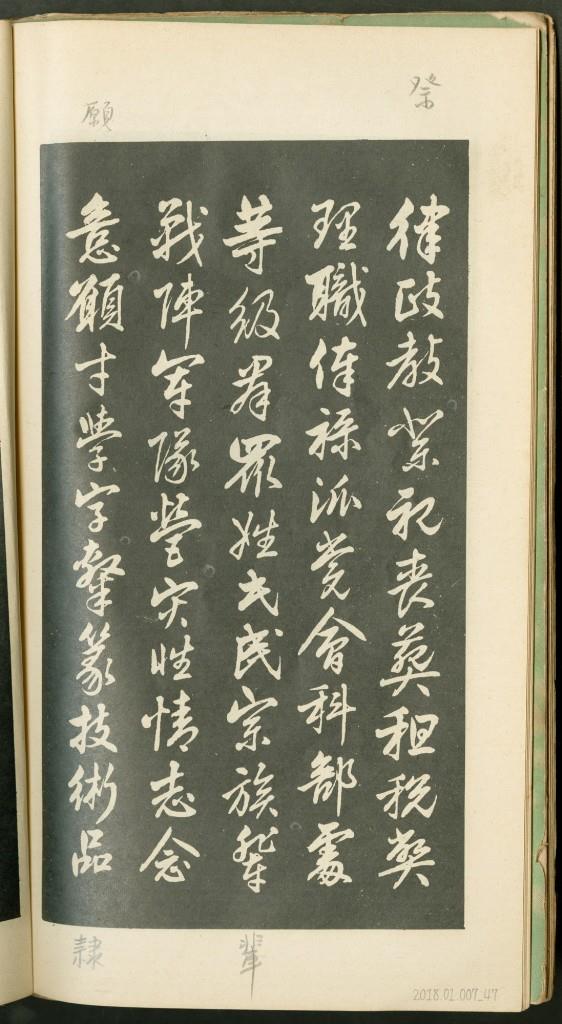 祭
願
律政教祭祀喪葬租税
理職俸祿派党會科部處
等級羣眾姓氏民宗族輩
戰陣軍隊營性情志念
意願才學字隸篆技術品
輩
隸
2018.01.007_47